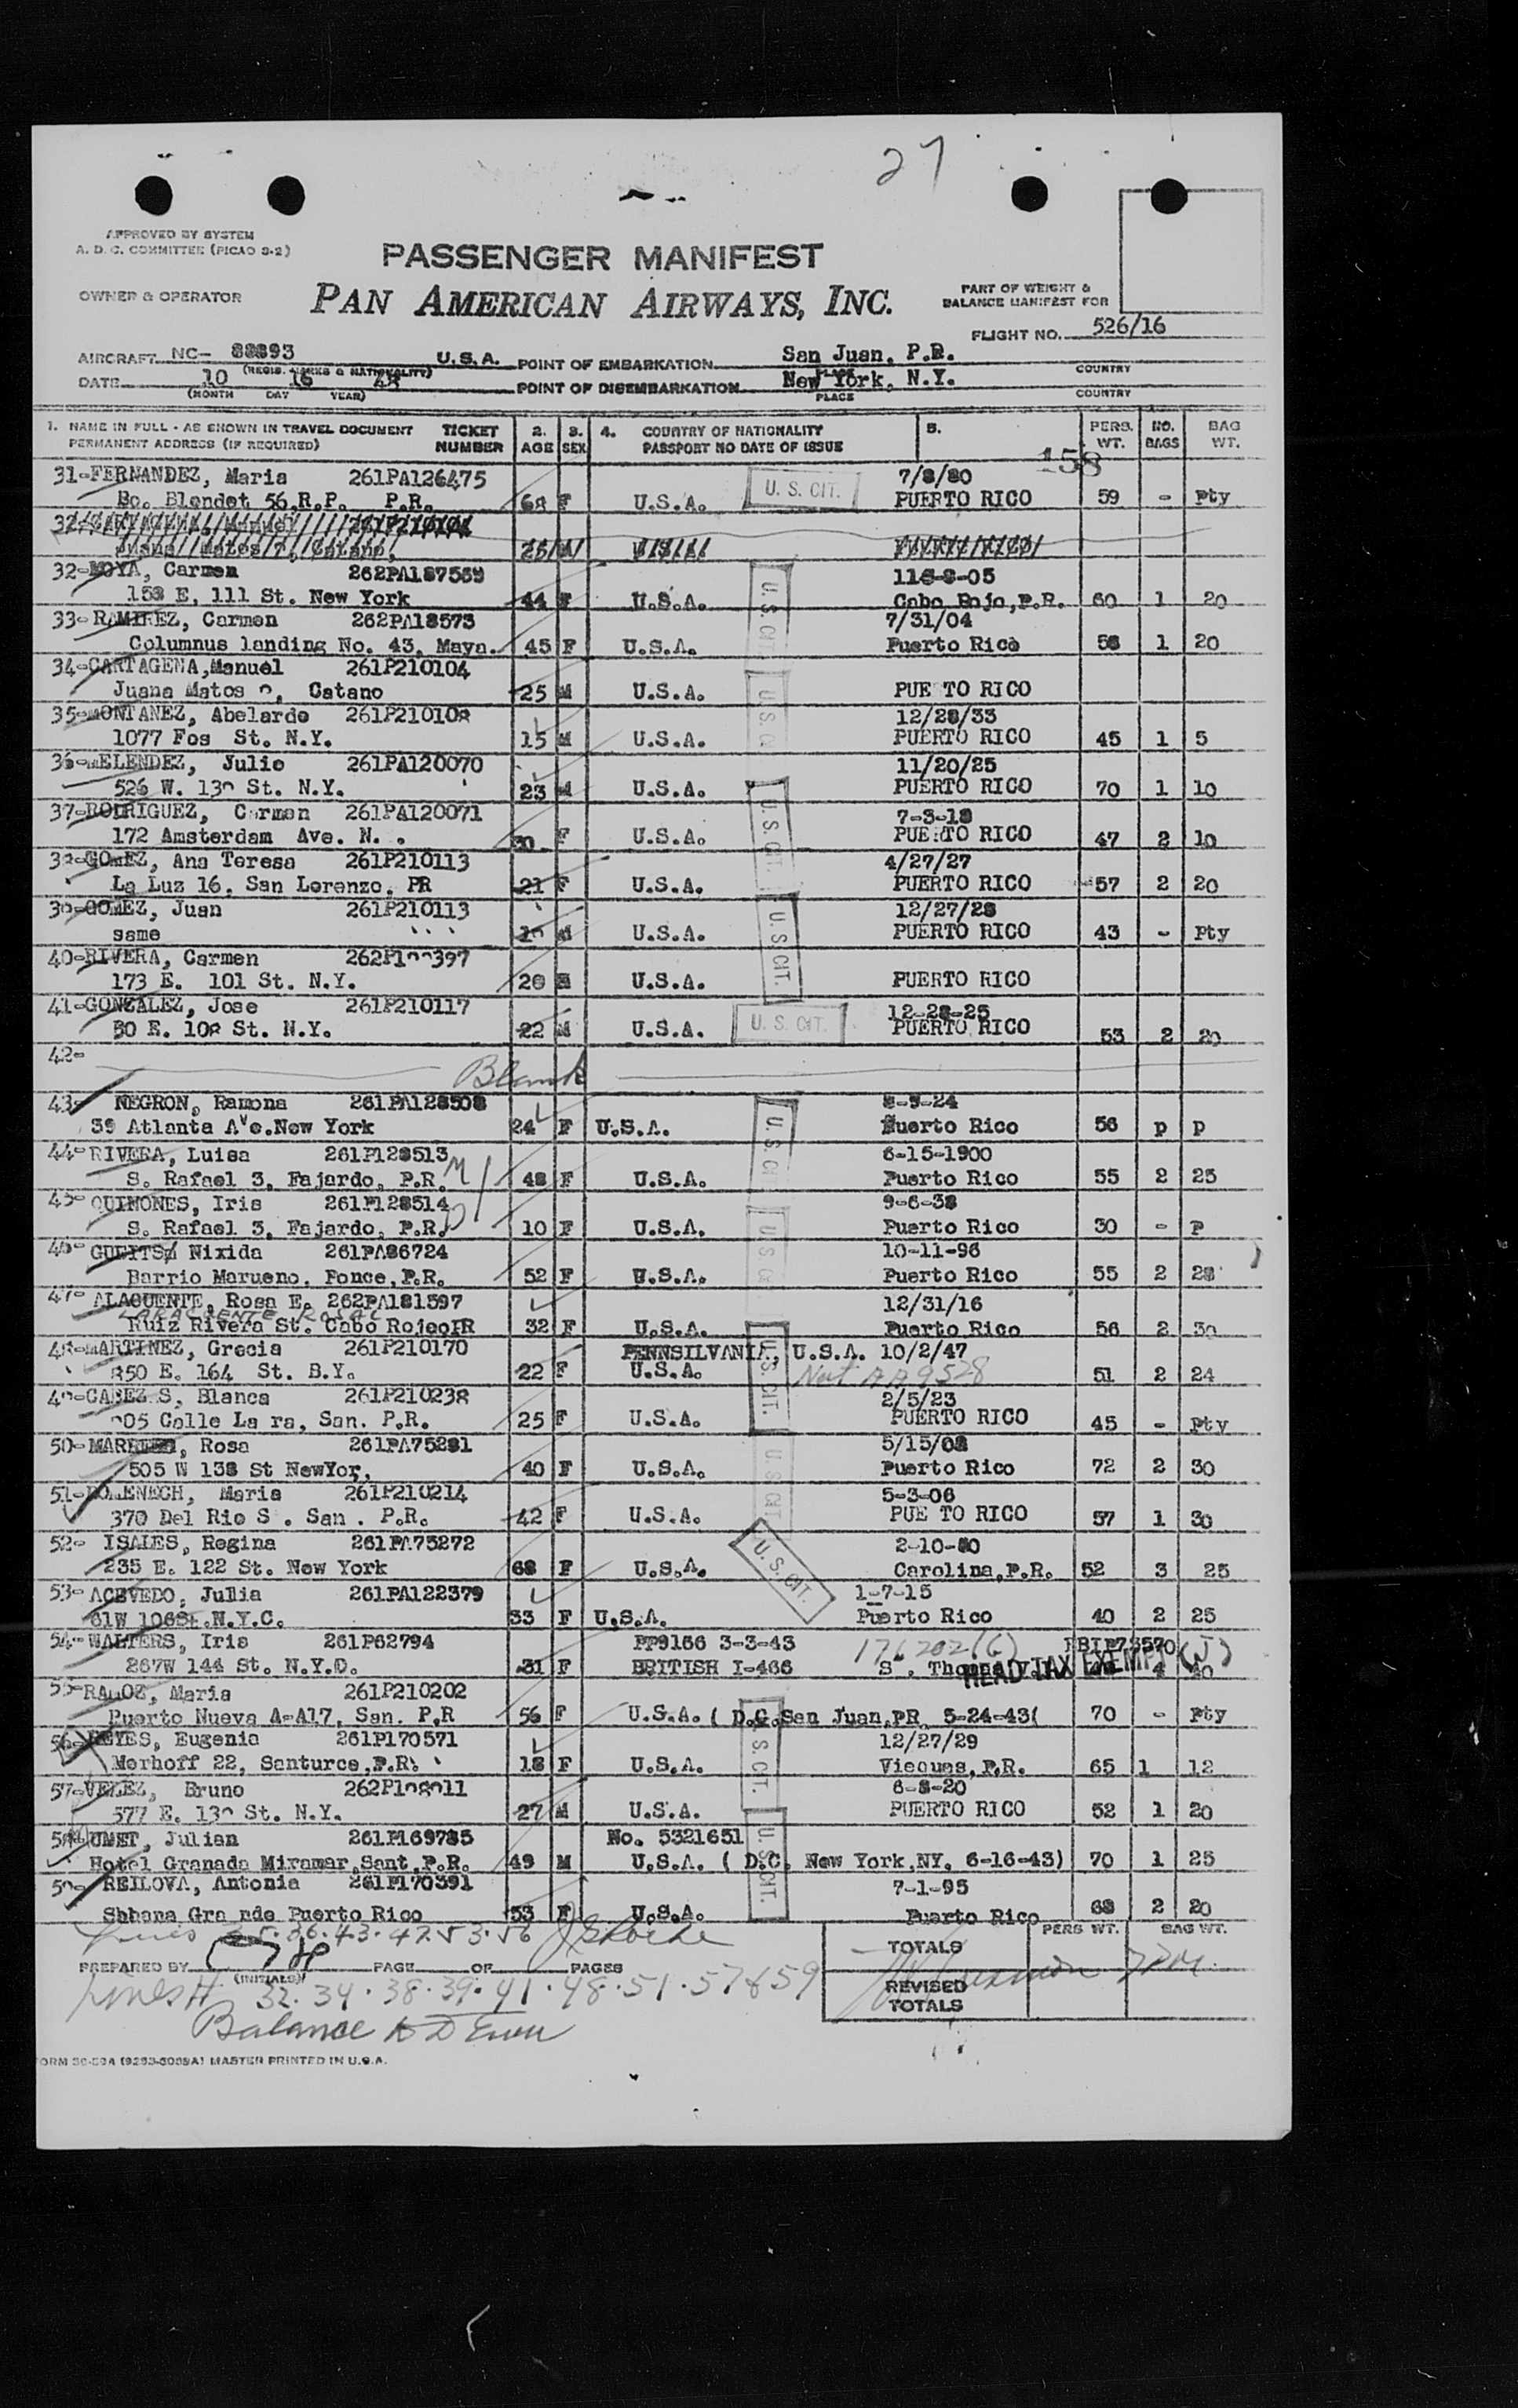 27
APPROVED BY SYSTEM
A. D. C. COMMITTEE (PICAO 9-2)
PASSENGER MANIFEST
OWNER & OPERATOR
PAN AMERICAN AIRWAYS, INC.
PART OF WEIGHT &
BALANCE MANIFEST FOR
FLIGHT NO. 526/16
AIRCRAFT NC- 88893 U.S.A. POINT OF EMBARKATION San Juan, P.R.
(REGIS. MARKS & NATIONALITY) PLACE COUNTRY
DATE 10 16 48 POINT OF DISEMBARKATION New York, N.Y.
(MONTH DAY YEAR) PLACE COUNTRY
1. NAME IN FULL - AS SHOWN IN TRAVEL DOCUMENT TICKET 2. 3. 4. COUNTRY OF NATIONALITY 5. PERS. NO. BAG
PERMANENT ADDRESS (IF REQUIRED) NUMBER AGE SEX PASSPORT NO DATE OF ISSUE WT. BAGS WT.
158
31-FERNANDEZ, Maria 261PA126475 U. S. CIT. 7/8/80
Bo. Blondet 56,R.P. P.R. 68 F U.S.A. PUERTO RICO 59 - Pty
32-MOYA, Carmen 262PA187569
158 E. 111 St. New York 44 F U.S.A. U. S. CIT. Cabo Rojo,P.R. 60 1 20
33-RAMIREZ, Carmen 262PA18573 7/31/04
Columnus landing No. 43, Maya. 45 F U.S.A. Puerto Rico 58 1 20
34-CARTAGENA,Manuel 261P210104
Juana Matos , Catano 25 M U.S.A. PUE TO RICO
35-MONTANEZ, Abelardo 261P210108 12/28/33
1077 Fos St. N.Y. 15 M U.S.A. PUERTO RICO 45 1 5
36-MELENDEZ, Julio 261PA120070 11/20/25
526 W. St. N.Y. 23 M U.S.A. PUERTO RICO 70 1 10
37-RODRIGUEZ, Carmen 261PA120071 7-3-18
172 Amsterdam Ave. N. . 30 F U.S.A. U. S. CIT. PUERTO RICO 47 2 10
38-GOMEZ, Ana Teresa 261P210113 4/27/27
La Luz 16, San Lorenzo, PR 21 F U.S.A. PUERTO RICO 57 2 20
39-GOMEZ, Juan 261P210113 12/27/28
same M U.S.A. U. S. CIT. PUERTO RICO 43 - Pty
40-RIVERA, Carmen
173 E. 101 St. N.Y. 20 U.S.A. PUERTO RICO
41-GONZALEZ, Jose 261P210117 12-28-25
30 E. 108 St. N.Y. 22 M U.S.A. U. S. CIT. PUERTO RICO 53 2 20
42-
Blank
43- NEGRON, Ramona 261PA128508 8-9-24
39 Atlanta Ave.New York 24 F U.S.A. U. S. CIT. Puerto Rico 56 p p
44-RIVERA, Luisa 261P128513 6-15-1900
S. Rafael 3, Fajardo, P.R. 48 F U.S.A. Puerto Rico 55 2 25
45-QUINONES, Iris 261P128514 9-6-38
S. Rafael 3, Fajardo, P.R. 10 F U.S.A. Puerto Rico 30 - P
46- Nixida 261PA86724 10-11-96
Barrio Marueno, Ponce,P.R. 52 F U.S.A. Puerto Rico 55 2 28
47-ALACUENTE, Rosa E. 262PA181597 12/31/16
LARACUENTE ROSA E
Ruiz Rivera St. Cabo Rojo PR 32 F U.S.A. Puerto Rico 56 2 30
48-MARTINEZ, Grecia 261P210170 PENNSILVANIA, U.S.A. 10/2/47
850 E. 164 St. B.Y. 22 F U.S.A. U. S. CIT. Nat AA9528 51 2 24
49-CABEZ S, Blanca 261P210238 2/5/23
05 Calle La ra, San. P.R. 25 F U.S.A. PUERTO RICO 45 - Pty
50- Rosa 261PA75281 5/15/08
505 W 138 St NewYor, 40 F U.S.A. Puerto Rico 72 2 30
51-DOMENECH, Maria 261P210214 5-3-06
370 Del Rio S . San . P.R. 42 F U.S.A. PUE TO RICO 57 1 30
52- ISALES, Regina 261PA75272 2-10-80
235 E. 122 St. New York 68 F U.S.A. U. S. CIT. Carolina,P.R. 52 3 25
53-ACEVEDO, Julia 261PA122379 1-7-15
61W 106St.N.Y.C. 33 F U.S.A. Puerto Rico 40 2 25
54-WALTERS, Iris 261P62794 PP9166 3-3-43 176202(G)
267W 144 St. N.Y.D. 31 F BRITISH I-466 S . Thomas HEAD TAX EXEMPT (J) 4 40
55-RAMOZ, Maria 261P210202
Puerto Nueva A-A17, San. P.R 56 F U.S.A. ( D.C.San Juan,PR. 5-24-43( 70 - Pty
56-REYES, Eugenia 261P170571 12/27/29
Merhoff 22, Santurce,P.R. 18 F U.S.A. U. S. CIT. Vieques, P.R. 65 1 12
57-VELEZ, Bruno 6-8-20
577 E. St. N.Y. 27 M U.S.A. PUERTO RICO 52 1 20
58- UMET, Julian 261P169785 No. 5321651
Hotel Granada Miramar,Sant,P.R. 49 M U.S.A. ( D.C. New York,NY. 6-16-43) 70 1 25
59- REILOVA, Antonia 261P170391 U. S. CIT. 7-1-95
Sbbana Gra nde Puerto Rico 53 F U.S.A. Puerto Rico 68 2 20
Lines 35.36.43.47.53.56
TOTALS PERS WT. BAG WT.
PREPARED BY PAGE OF PAGES
(INITIALS)
REVISED
TOTALS
Lines 32.34.38.39.41.48.51.57&59
Balance to D
FORM 30-59A (9293-6005A) MASTER PRINTED IN U.S.A.